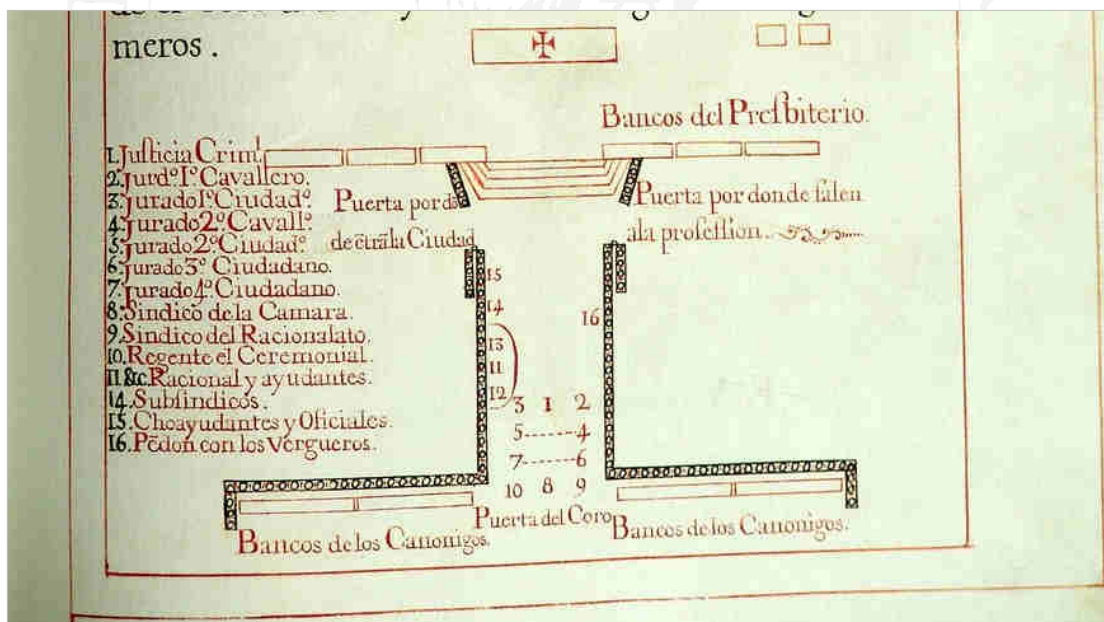 meros.
Bancos del Presbiterio.
1. Justicia Crim.l
2. Jurd.º 1.º Cavallero.
3. Jurado 1.º Ciudad.º
4. Jurado 2.º Cavall.º
5. Jurado 2.º Ciudad.º
6. Jurado 3.º Ciudadano.
7. Jurado 4.º Ciudadano.
8. Sindico de la Camara.
9. Sindico del Racionalato.
10. Regente el Ceremonial.
11. &c. Racional y ayudantes.
14. Subsindicos.
15. Choayudantes y Oficiales.
16. Pēdon con los Vergueros.
Puerta por dō
de ētra la Ciudad
Puerta por donde salen
a la professiion.
15
14
16
13
11
12
3 1 2
5------4
7------6
10 8 9
Puerta del Coro
Bancos de los Canonigos.
Bancos de los Canonigos.